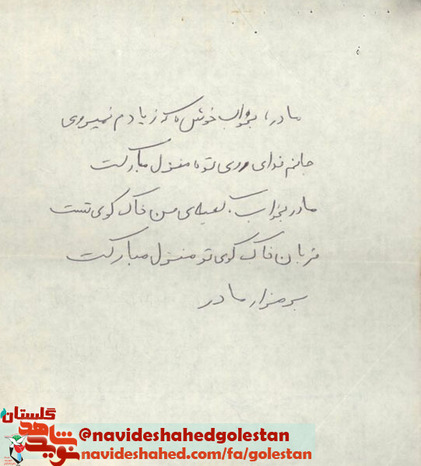 مادر، بخواب خوش که ز یادم نمیروی
جانم فدای روی تو منزل مبارکت
مادر بخواب. کعبه‌ی من خاک کوی تست
قربان خاک کوی تو منزل مبارکت
بر مزار مادر
گلستان
نوید شاهد
@navideshahedgolestan
navideshahed.com/fa/golestan